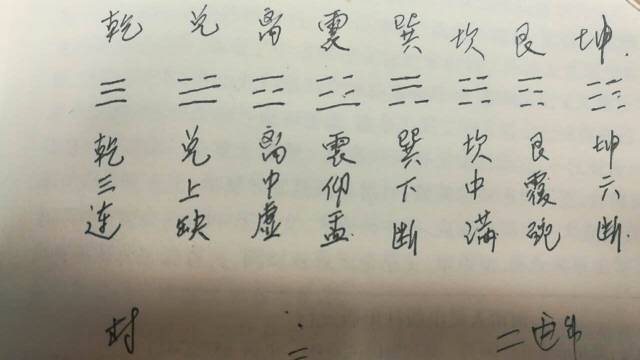 乾 兑 离 震 巽 坎 艮 坤
☰ ☱ ☲ ☳ ☴ ☵ ☶ ☷
乾 兑 离 震 巽 坎 艮 坤
三 上 中 仰 下 中 覆 六
连 缺 虚 盂 断 满 碗 断